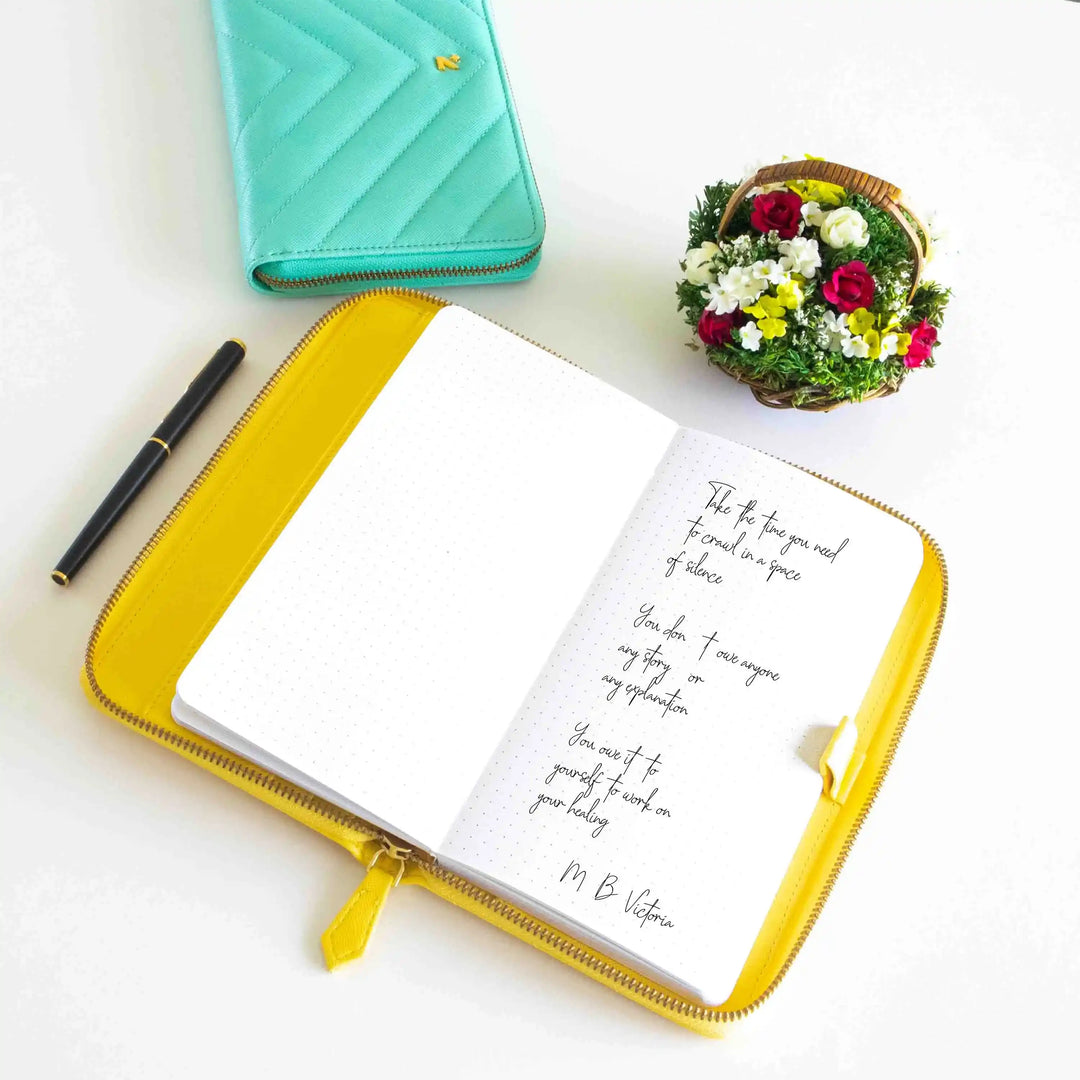 Take the time you need
to crawl in a space
of silence
You don t owe anyone
any story or
any explanation
You owe it to
yourself to work on
your healing
M B Victoria